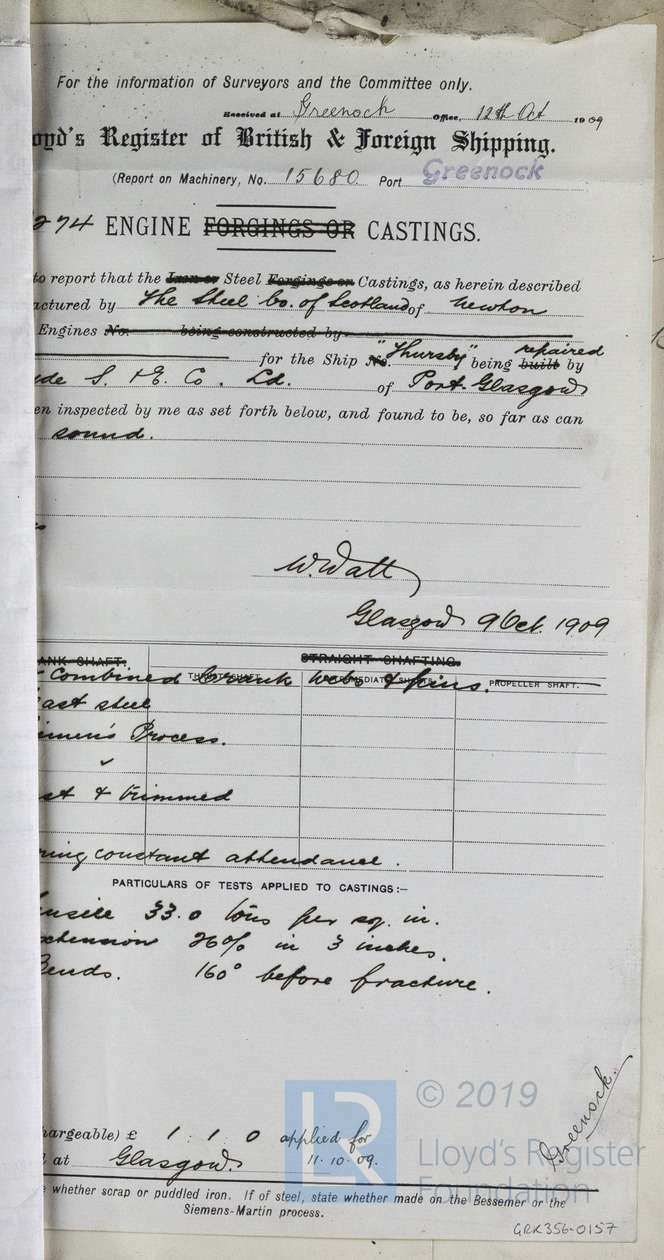 For the information of Surveyors and the Committee only.
Received at Greenock Office, 12th Oct 1909
oyd's Register of British & Foreign Shipping.
(Report on Machinery, No. 15680 Port Greenock
274 ENGINE FORGINGS OR CASTINGS.
to report that the Iron or Steel Forgings or Castings, as herein described
actured by The Steel Co. of Scotland of Newton
Engines No. being constructed by
for the Ship No. "Thursby" being built repaired by
de S. & E. Co. Ld. of Port-Glasgow
en inspected by me as set forth below, and found to be, so far as can
sound.
W. Watt
Glasgow 9 Oct. 1909
ANK SHAFT. STRAIGHT SHAFTING.
THRUST SHAFT. INTERMEDIATE SHAFTS. PROPELLER SHAFT.
Combined Crank Webs & pins.
ast steel
imen's Process.
✓
st & trimmed
ring constant attendance.
PARTICULARS OF TESTS APPLIED TO CASTINGS:—
nsile 33.0 tons per sq. in.
xtension 26% in 3 inches.
Bends. 160° before fracture.
hargeable) £ 1 : 1 : 0 applied for
at Glasgow. 11.10.09.
Greenock.
whether scrap or puddled iron. If of steel, state whether made on the Bessemer or the
Siemens-Martin process.
GRK356-0157
LR
© 2019
Lloyd's Register
Foundation